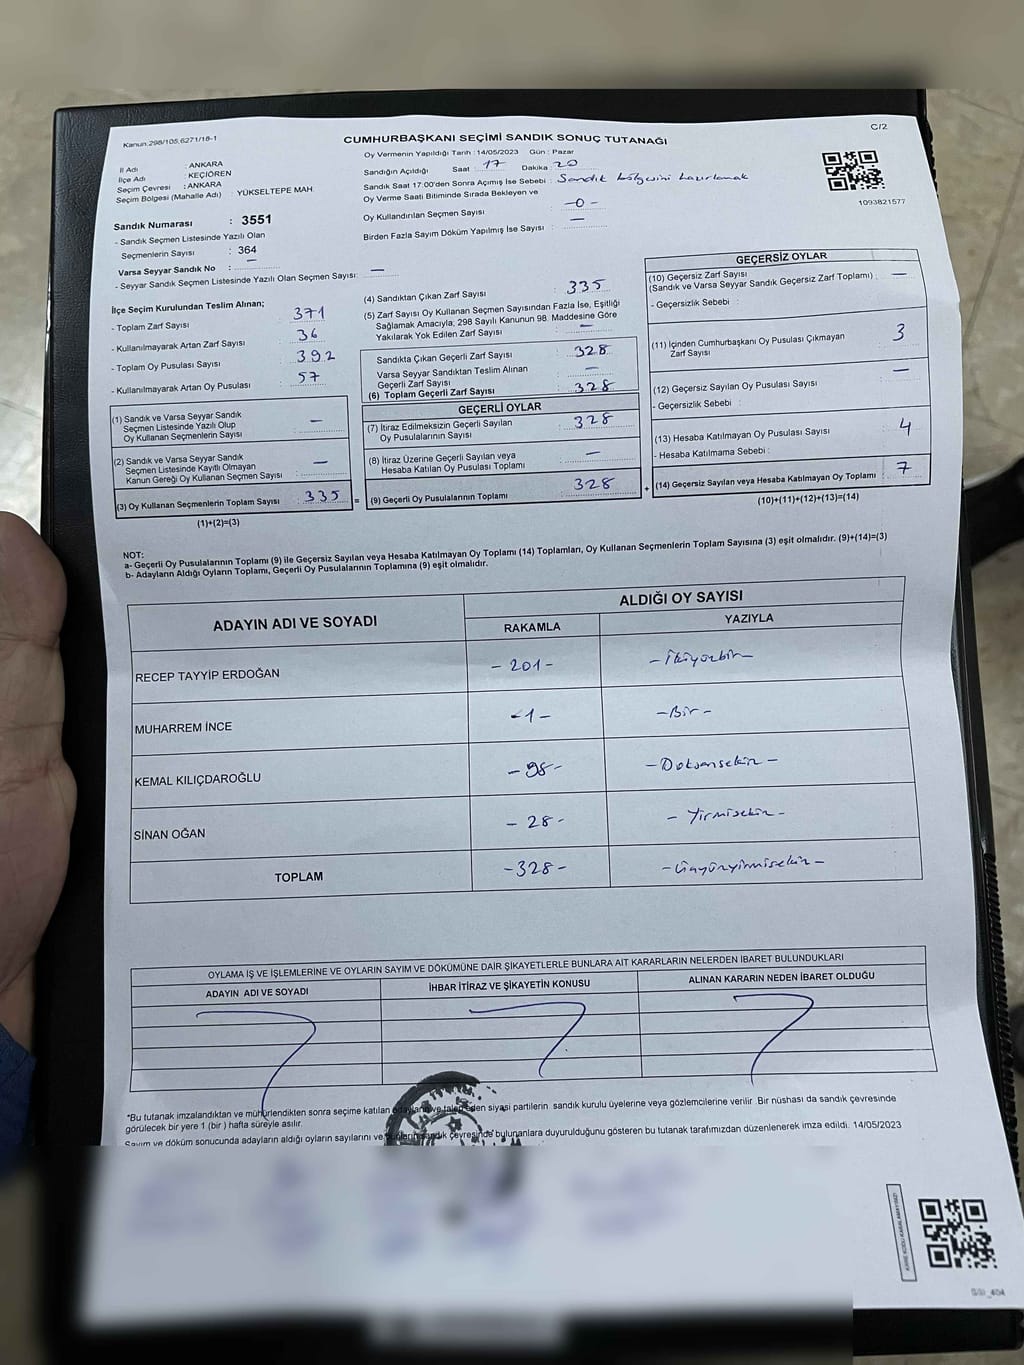 Kanun:298/105,6271/18-1
C/2
CUMHURBAŞKANI SEÇİMİ SANDIK SONUÇ TUTANAĞI
İl Adı : ANKARA
İlçe Adı : KEÇİÖREN
Seçim Çevresi : ANKARA
Seçim Bölgesi (Mahalle Adı) : YÜKSELTEPE MAH.
Oy Vermenin Yapıldığı Tarih : 14/05/2023 Gün : Pazar
Sandığın Açıldığı Saat : 17 Dakika : 20
Sandık Saat 17:00'den Sonra Açımış İse Sebebi : Sandık bölgesini hazırlamak
Oy Verme Saati Bitiminde Sırada Bekleyen ve
Oy Kullandırılan Seçmen Sayısı : -0-
Birden Fazla Sayım Döküm Yapılmış İse Sayısı : —
1093821577
Sandık Numarası : 3551
- Sandık Seçmen Listesinde Yazılı Olan
Seçmenlerin Sayısı : 364
Varsa Seyyar Sandık No : —
- Seyyar Sandık Seçmen Listesinde Yazılı Olan Seçmen Sayısı: —
İlçe Seçim Kurulundan Teslim Alınan;
- Toplam Zarf Sayısı : 371
- Kullanılmayarak Artan Zarf Sayısı : 36
- Toplam Oy Pusulası Sayısı : 392
- Kullanılmayarak Artan Oy Pusulası : 57
(1) Sandık ve Varsa Seyyar Sandık
Seçmen Listesinde Yazılı Olup
Oy Kullanan Seçmenlerin Sayısı : —
(2) Sandık ve Varsa Seyyar Sandık
Seçmen Listesinde Kayıtlı Olmayan
Kanun Gereği Oy Kullanan Seçmen Sayısı : —
(3) Oy Kullanan Seçmenlerin Toplam Sayısı : 335 =
(1)+(2)=(3)
(4) Sandıktan Çıkan Zarf Sayısı : 335
(5) Zarf Sayısı Oy Kullanan Seçmen Sayısından Fazla İse, Eşitliği
Sağlamak Amacıyla, 298 Sayılı Kanunun 98. Maddesine Göre
Yakılarak Yok Edilen Zarf Sayısı : —
Sandıkta Çıkan Geçerli Zarf Sayısı : 328
Varsa Seyyar Sandıktan Teslim Alınan
Geçerli Zarf Sayısı : —
(6) Toplam Geçerli Zarf Sayısı : 328
GEÇERLİ OYLAR
(7) İtiraz Edilmeksizin Geçerli Sayılan
Oy Pusulalarının Sayısı : 328
(8) İtiraz Üzerine Geçerli Sayılan veya
Hesaba Katılan Oy Pusulası Toplamı : —
(9) Geçerli Oy Pusulalarının Toplamı : 328 +
GEÇERSİZ OYLAR
(10) Geçersiz Zarf Sayısı
(Sandık ve Varsa Seyyar Sandık Geçersiz Zarf Toplamı) : —
- Geçersizlik Sebebi :
(11) İçinden Cumhurbaşkanı Oy Pusulası Çıkmayan
Zarf Sayısı : 3
(12) Geçersiz Sayılan Oy Pusulası Sayısı : —
- Geçersizlik Sebebi :
(13) Hesaba Katılmayan Oy Pusulası Sayısı : 4
- Hesaba Katılmama Sebebi :
(14) Geçersiz Sayılan veya Hesaba Katılmayan Oy Toplamı : 7
(10)+(11)+(12)+(13)=(14)
NOT:
a- Geçerli Oy Pusulalarının Toplamı (9) ile Geçersiz Sayılan veya Hesaba Katılmayan Oy Toplamı (14) Toplamları, Oy Kullanan Seçmenlerin Toplam Sayısına (3) eşit olmalıdır. (9)+(14)=(3)
b- Adayların Aldığı Oyların Toplamı, Geçerli Oy Pusulalarının Toplamına (9) eşit olmalıdır.
ADAYIN ADI VE SOYADI ALDIĞI OY SAYISI
RAKAMLA YAZIYLA
RECEP TAYYİP ERDOĞAN -201- -İkiyüzbir-
MUHARREM İNCE -1- -Bir-
KEMAL KILIÇDAROĞLU -98- -Doksansekiz-
SİNAN OĞAN -28- -Yirmisekiz-
TOPLAM -328- -Üçyüzyirmisekiz-
OYLAMA İŞ VE İŞLEMLERİNE VE OYLARIN SAYIM VE DÖKÜMÜNE DAİR ŞİKAYETLERLE BUNLARA AİT KARARLARIN NELERDEN İBARET BULUNDUKLARI
ADAYIN ADI VE SOYADI İHBAR İTİRAZ VE ŞİKAYETİN KONUSU ALINAN KARARIN NEDEN İBARET OLDUĞU
*Bu tutanak imzalandıktan ve mühürlendikten sonra seçime katılan adayların ve talep eden siyasi partilerin sandık kurulu üyelerine veya gözlemcilerine verilir. Bir nüshası da sandık çevresinde
görülecek bir yere 1 (bir) hafta süreyle asılır.
Sayım ve döküm sonucunda adayların aldığı oyların sayılarını ve bunların sandık çevresinde bulunanlara duyurulduğunu gösteren bu tutanak tarafımızdan düzenlenerek imza edildi. 14/05/2023
KARE KODU KARALAMAYINIZ!